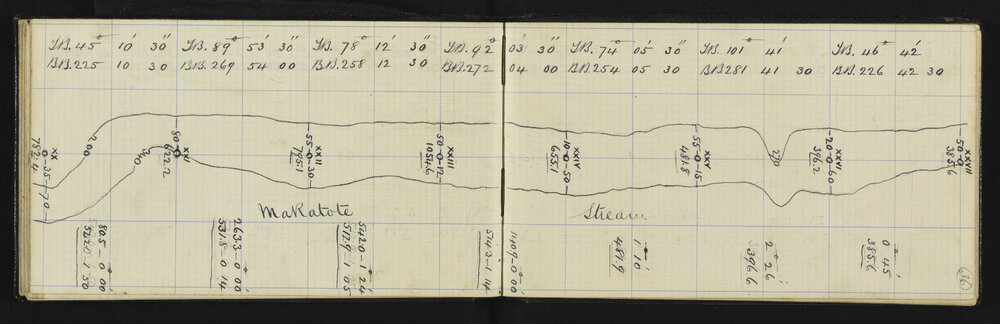 F.B. 45° 10' 30" F.B. 89° 53' 30" F.B. 78° 12' 30" F.B. 92° 03' 30" F.B. 74° 05' 30" F.B. 101° 41' F.B. 46° 42'
B.B. 225 10 30 B.B. 269 54 00 B.B. 258 12 30 B.B. 272 04 00 B.B. 254 05 30 B.B. 281 41 30 B.B. 226 42 30
XX
0-35-70
782.4
200
340
XXI
80-0
622.2
XXII
55-0-30
795.1
XXIII
50-0-12
1054.6
10-0-50
655.1
XXV
55-0-15
481.8
270
XXVI
20-0-60
396.2
XXVII
50-0
385.6
Makatote Stream
80.5-0° 00'
522.0-1 30
263.3-0° 00'
531.8-0 14
542.0-1° 24'
512.9-1 05
514.3-1 14
1409-0° 00'
1° 10'
481.9
2° 26'
396.6
0° 45'
385.6
16